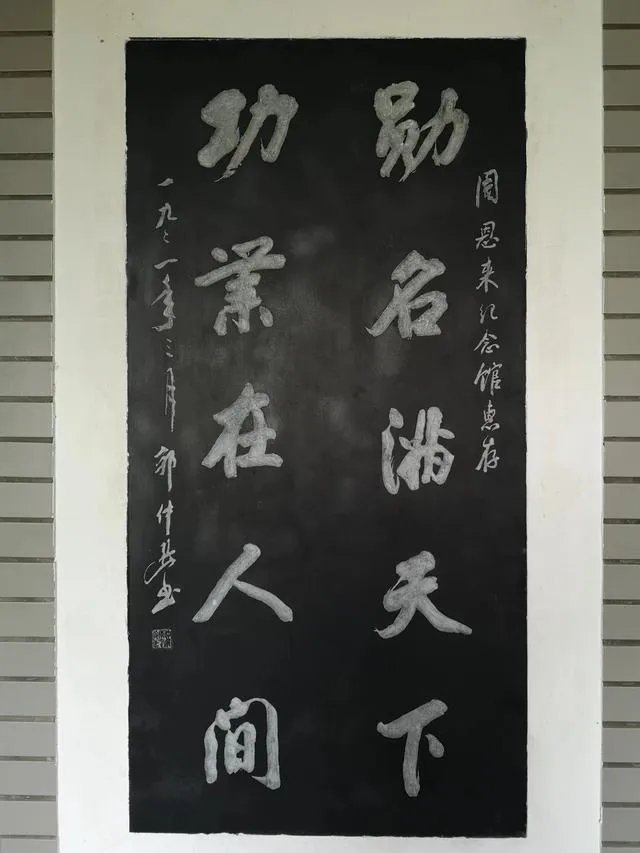 周恩来纪念馆惠存
勋名满天下
功業在人间
一九々一年三月 郭仲选书